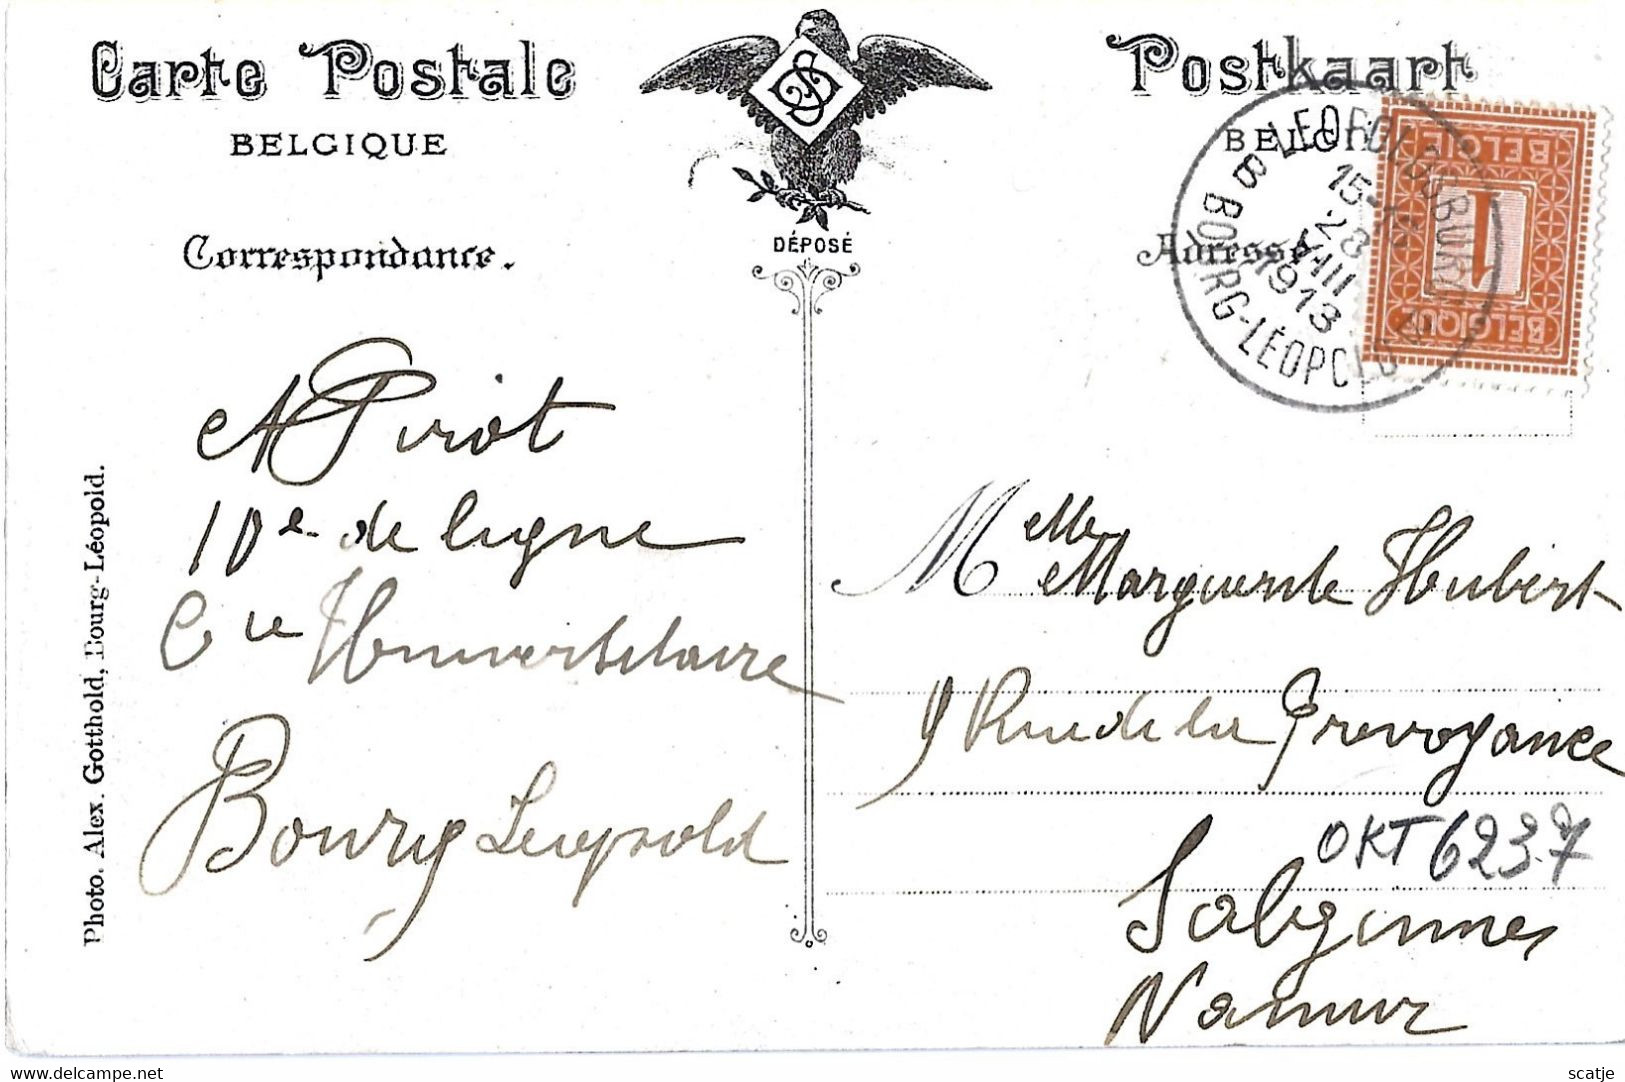 Carte Postale
BELGIQUE
Correspondance.
DÉPOSÉ
Postkaart
BELGI
Adresse
LEOPOLDSBURG
B BOURG-LÉOPOLD
15-
28
VIII
1913
BELGIË
1
BELGIQUE
A Pirot
10e de ligne
Cie Universitaire
Bourg Léopold
Melle Marguerite Hubert
9 Rue de la Prevoyance
OKT 6237
Salzinnes
Namur
Photo. Alex. Gotthold, Bourg-Léopold.
delcampe.net
scatje